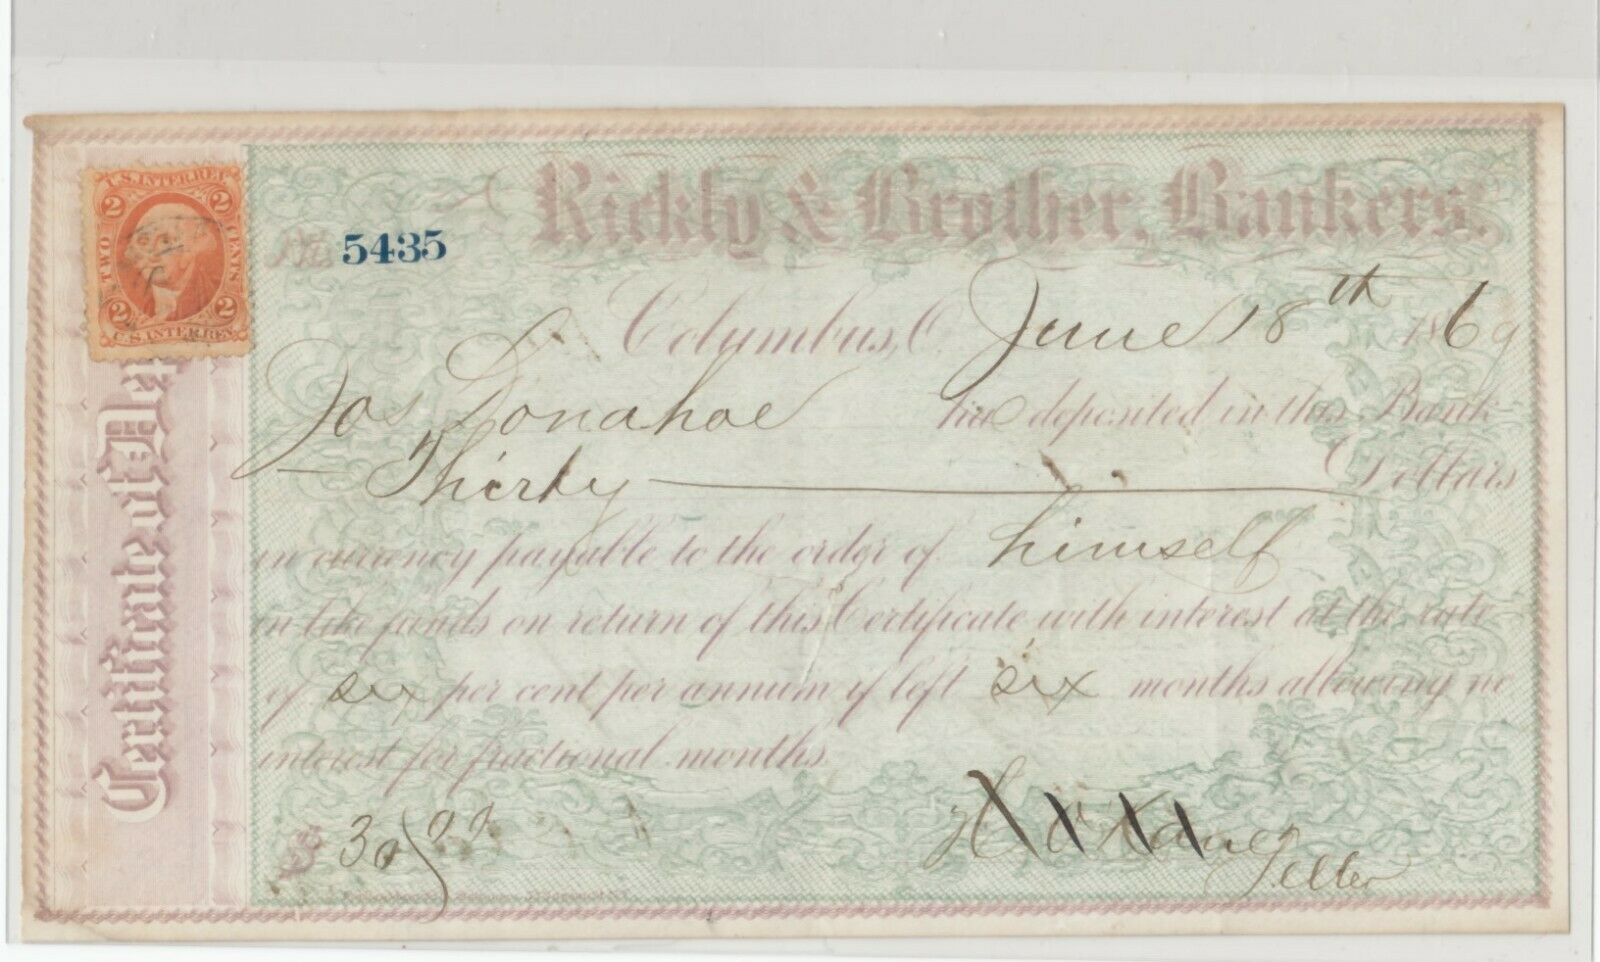 U.S. INTER. REV.
2 2
TWO CENTS
2 2
U.S. INTER. REV.
Certificate of Dep
Rickly & Brother, Bankers.
No. 5435
Columbus, O. June 18th 1869
Jos Donahoe has deposited in this Bank
Thirty Dollars
in currency payable to the order of himself
in like funds on return of this Certificate with interest at the rate
of six per cent per annum if left six months allowing no
interest for fractional months.
$ 30
Teller